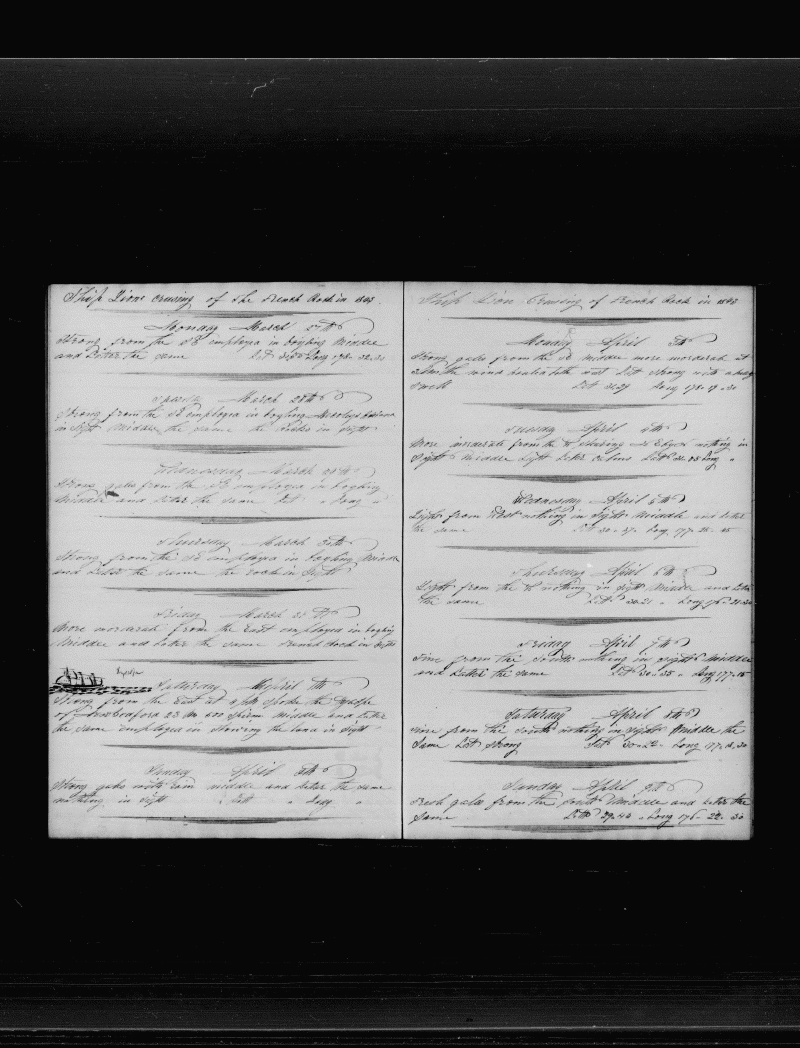 Ship Lion Cruising of the French Rock in 1843
Monday March 27th
Strong from the SE employed in boyling Middle
and Latter the same Lat 31.50 Long 178.32.30
March 28th
Strong from the SE employed in boyling
in sight Middle the same the rocks in sight
March 29th
Strong gales from the SE employed in boyling
Middle and Latter the same Lat " Long "
Thursday March 30th
Strong from the SE employed in boyling Middle
and Latter the same the rock in sight
Friday March 31st
More morderate from the East employed in boyling
Middle and Latter the same French Rock in sight
Saturday April 1th
Strong from the East at spoke the
of 23 m 600 sperm middle and Latter
the same employed in Stowing the land in sight
Sunday April
Strong gales with rain middle and latter the same
nothing in sight Lat " Long "
Ship Lion Cruising of French Rock in 1843
Monday April 3th
Strong gales from the middle more morderate at
the wind west Lat Strong with a heavy
Swell Lat 31.29 Long 178.19.30
Tuesday April 4th
More morderate from the nothing in
Sight Middle Light Latter Calms Lat 31.05 Long "
Wednesday April 5th
Light from West nothing in sight Middle and latter
the same Lat 30.37 Long 177.25.15
Thursday April 6th
Light from the nothing in sight Middle and Latter
the same Lat 30.21 Long
Friday April 7th
Fine from the South nothing in sight Middle
and Latter the same Lat 30.35 Long 177.15
Saturday April 8th
Fine from the South nothing in sight Middle the
Same Lat Strong Lat Long 177.16.30
Sunday April 9th
Fresh gales from the South Middle and latter the
Same Lat 29.43 Long 176.22.30